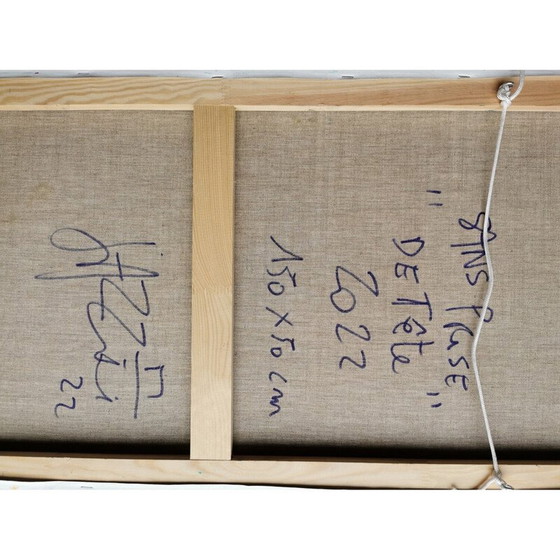 "SANS PRISE
DE Tête"
2022
150 X 50 cm
22